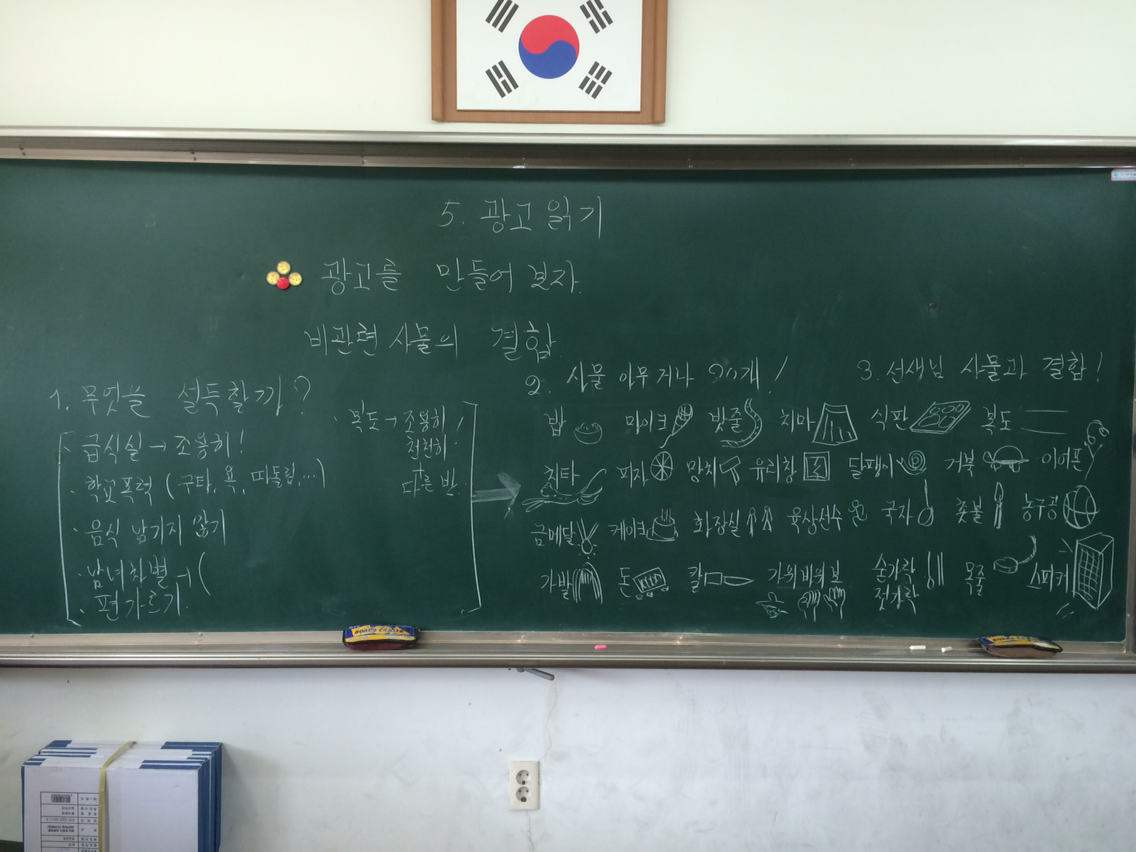 5. 광고 읽기
광고를 만들어 보자.
비관련 사물의 결합
1. 무엇을 설득할까?
· 급식실 → 조용히!
· 학교폭력 (구타, 욕, 따돌림,...)
· 음식 남기지 않기
· 남녀차별 → (
· 편가르기.
· 복도 → 조용히!
천천히!
+
다른 반
2. 사물 아무거나 20개!
3. 선생님 사물과 결합!
밥 마이크 밧줄 치마 식판 복도
치타 피자 망치 유리창 달팽이 거북 이어폰
금메달 케이크 화장실 육상선수 국자 촛불 농구공
가발 돈 칼 가위바위보 숟가락 목줄 스피커
젓가락